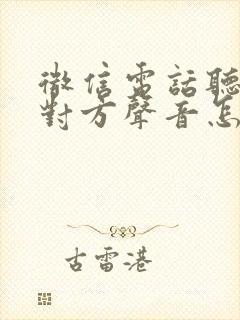 微信電話聽
對方聲音怎
古雷港